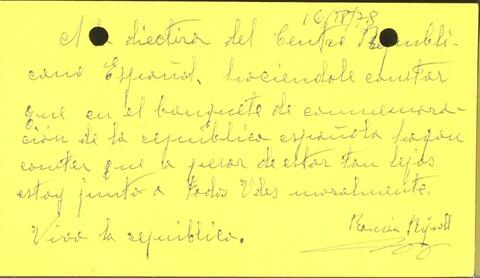 16/IV/78
A la directiva del Centro Republi-
cano Español, haciendole constar
que en el banquete de conmemora-
ción de la republica española hagan
constar que a pesar de estar tan lejos
estoy junto a todos Vdes moralmente.
Viva la republica.
Román